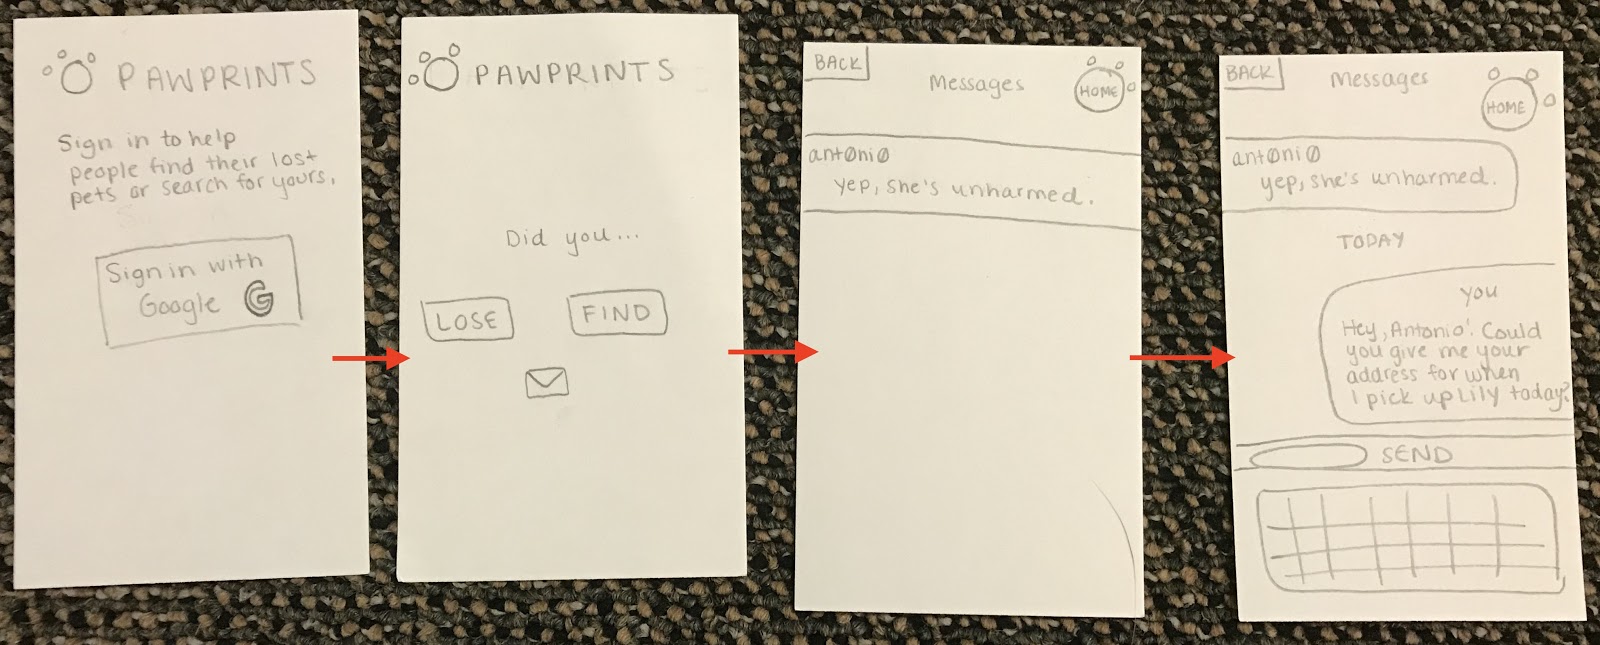 PAWPRINTS
Sign in to help
people find their lost
pets or search for yours.
Sign in with
Google G
PAWPRINTS
Did you...
LOSE
FIND
BACK
Messages
HOME
antØniØ
yep, she's unharmed.
BACK
Messages
HOME
antØniØ
yep, she's unharmed.
TODAY
you
Hey, Antonio! Could
you give me your
address for when
I pick up Lily today?
SEND